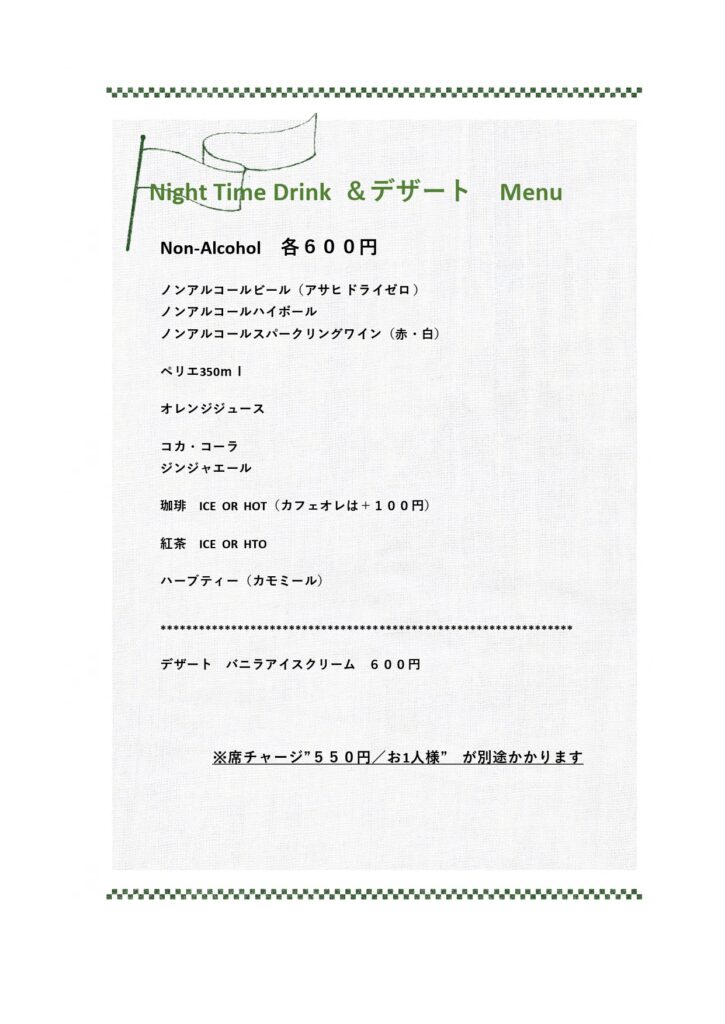 Night Time Drink ＆デザート　Menu
Non-Alcohol　各６００円
ノンアルコールビール（アサヒドライゼロ）
ノンアルコールハイボール
ノンアルコールスパークリングワイン（赤・白）
ペリエ350ｍｌ
オレンジジュース
コカ・コーラ
ジンジャエール
珈琲　ICE OR HOT（カフェオレは＋１００円）
紅茶　ICE OR HTO
ハーブティー（カモミール）
*****************************************************************
デザート　バニラアイスクリーム　６００円
※席チャージ”５５０円／お1人様”　が別途かかります